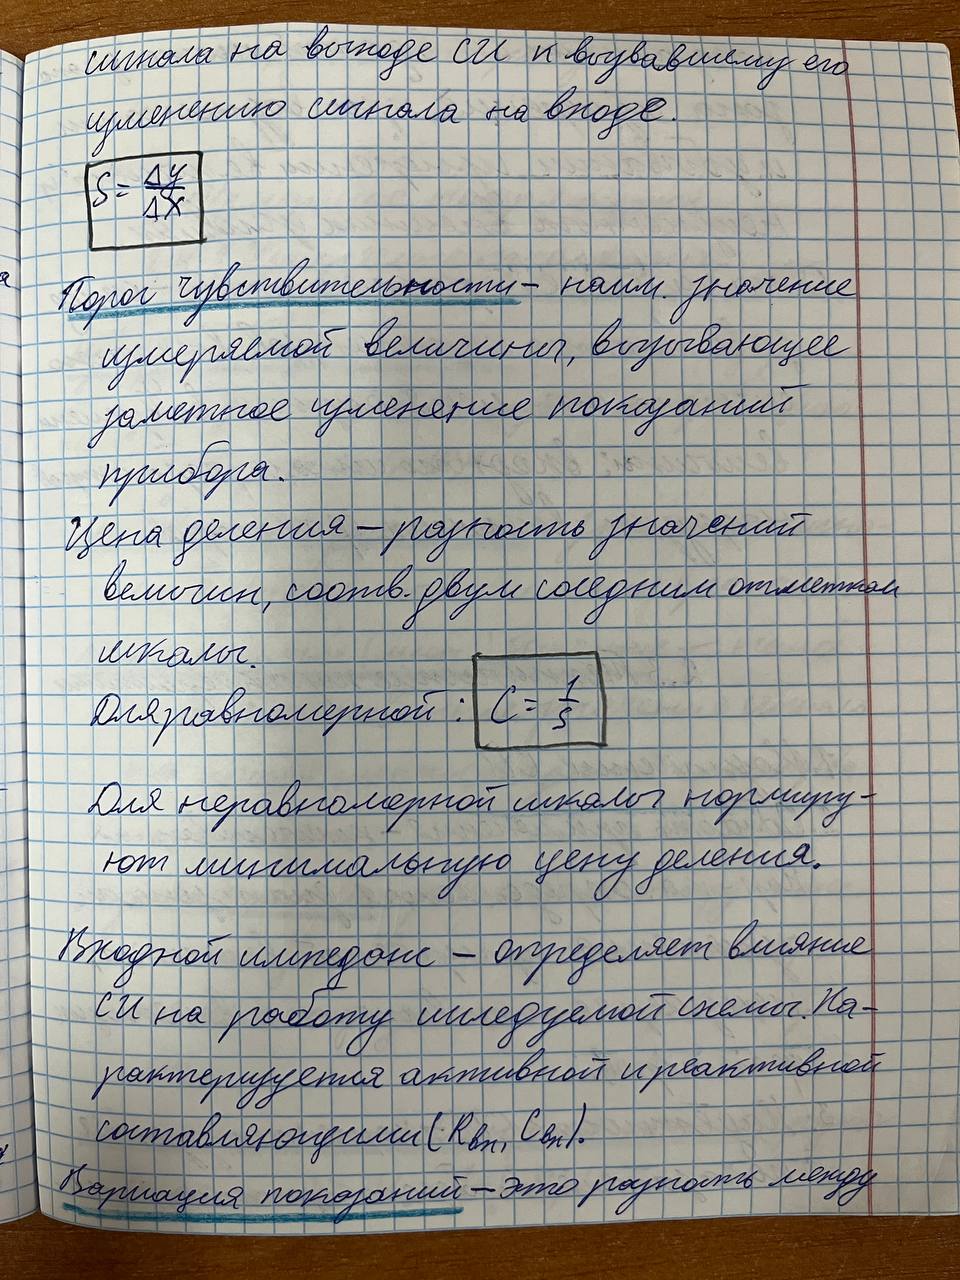 сигнала на выходе СИ к вызвавшему его
изменению сигнала на входе.
S = Δy/Δx
Порог чувствительности – наим. значение
измеряемой величины, вызывающее
заметное изменение показаний
прибора.
Цена деления – разность значений
величин, соотв. двум соседним отметкам
шкалы.
Для равномерной : C = 1/S
Для неравномерной шкалы нормиру-
ют минимальную цену деления.
Входной импеданс – определяет влияние
СИ на работу исследуемой схемы. Ха-
рактеризуется активной и реактивной
составляющими (Rвх, Cвх).
Вариация показаний – это разность между